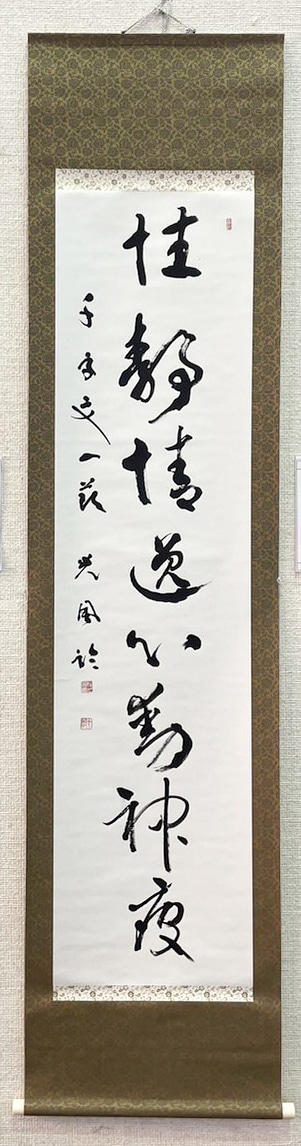 性靜情逸心動神疲
千字文一節 光風臨